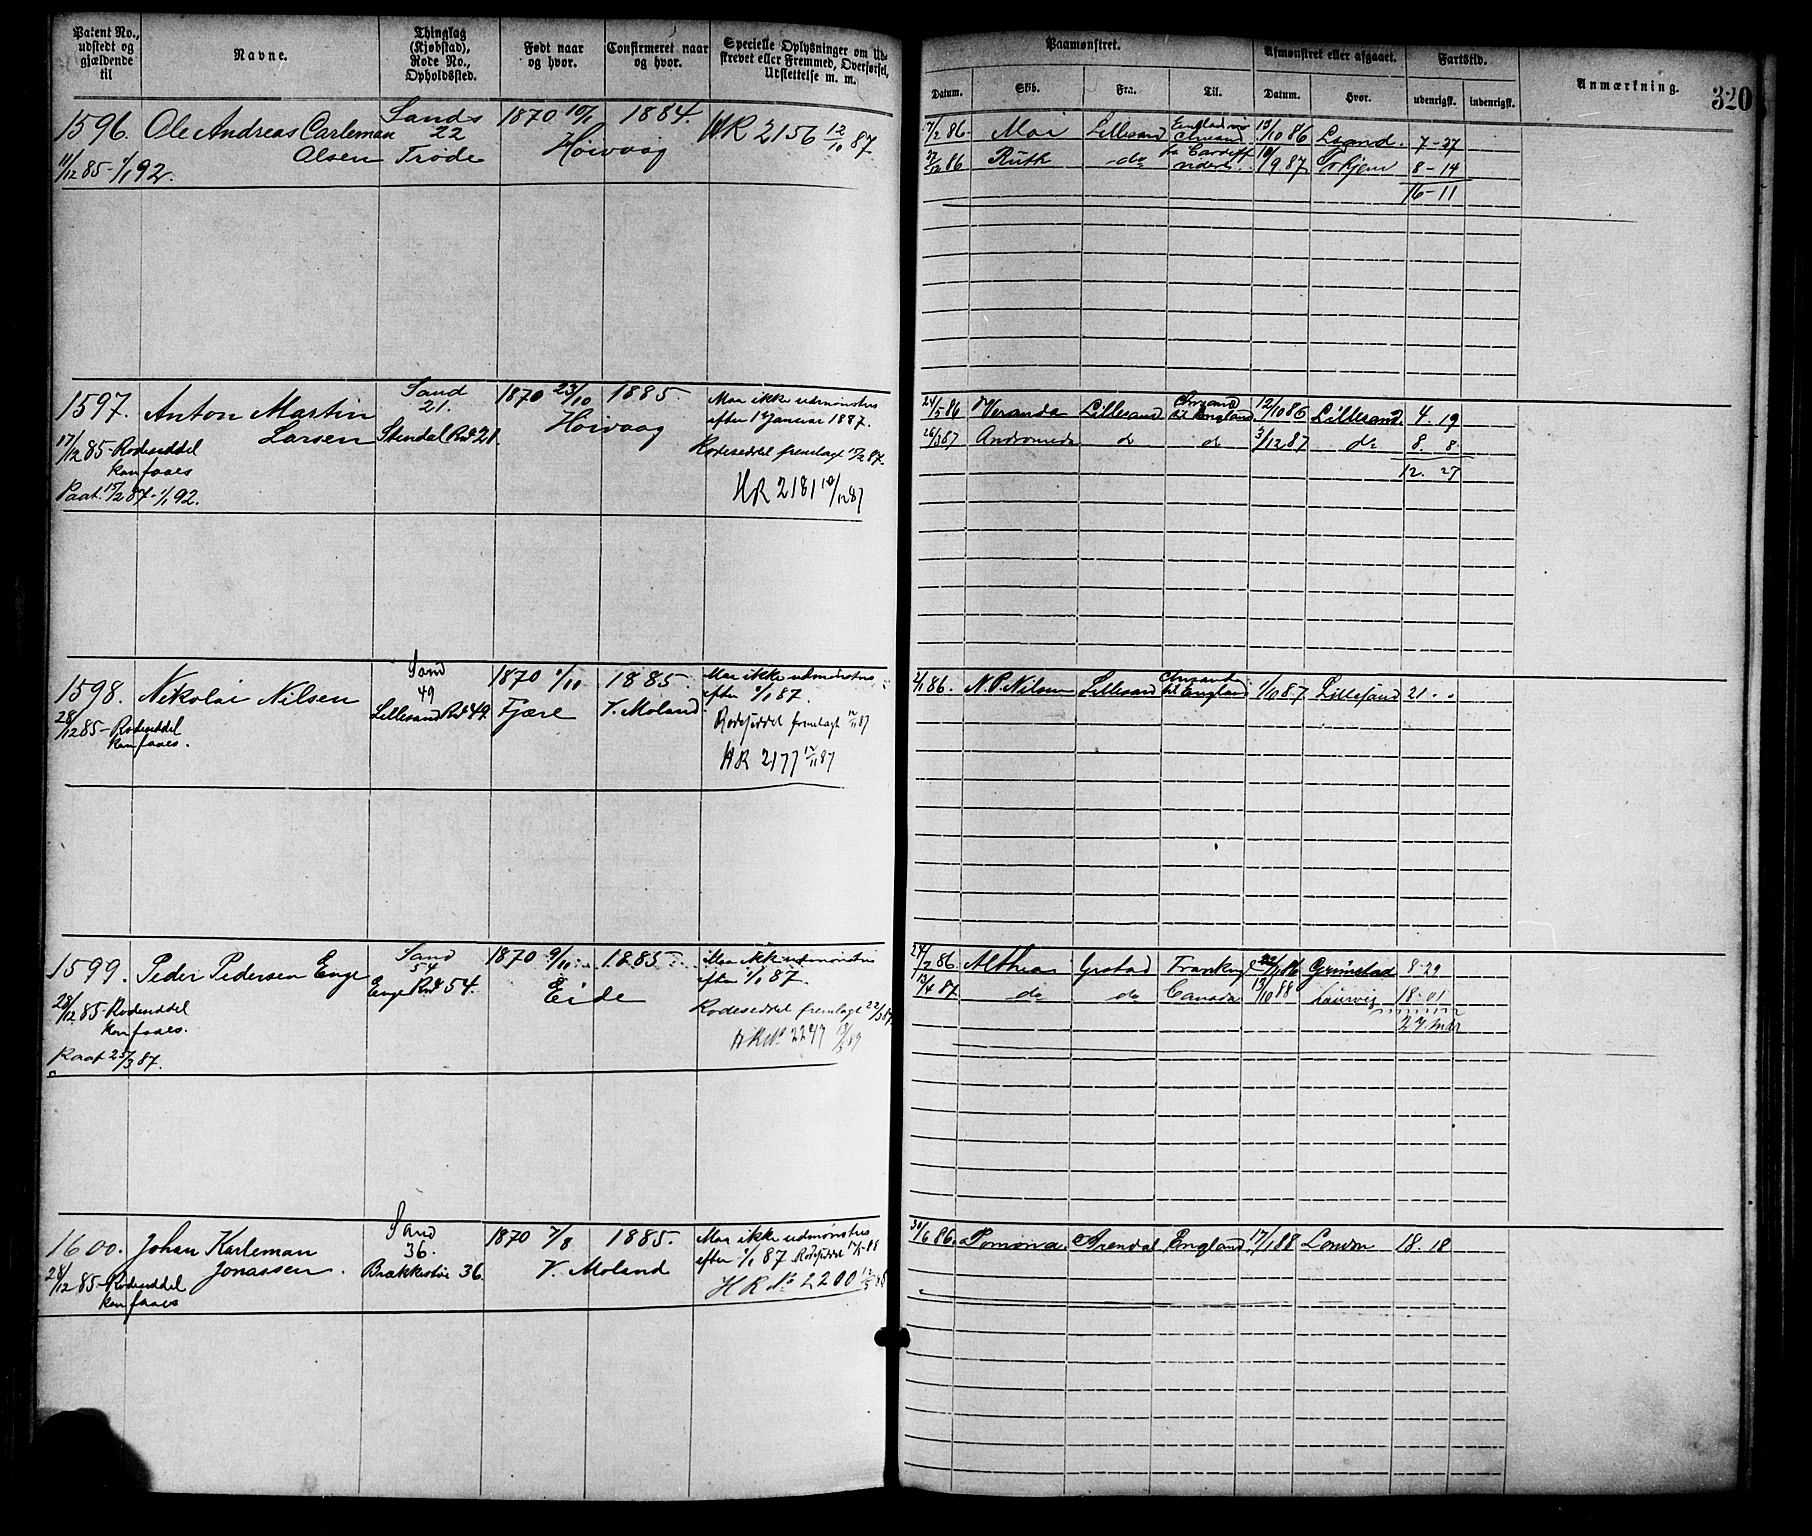 Patent No., udstedt og gjældende til
Navne.
Thinglag (Kjøbstad), Rode No., Opholdssted.
Født naar og hvor.
Confirmeret naar og hvor.
Specielle Oplysninger om Udskrevet eller Fremmed, Overførsel, Udslettelse m. m.
Paamønstret.
Afmønstret eller afgaaet.
Fartstid.
Anmærkning.
320
Datum.
Skib.
Fra.
Til.
Datum.
Hvor.
udenrigsk.
indenrigsk.
1596. Ole Andreas Carleman Sands 1870 10/1 1884. HR 2156 12/10 87
Olsen 22 Trøde Høivaag
11/12 85 - 1/1 92.
17/2 86 - Moi Lillesand 13/10 86 Lsand. 7-27
27/12 86 Ruth do fra Cardiff 10/9 87 8-14
16-11
1597. Anton Martin Sand 1870 23/10 1885. Maa ikke udmønstres
Larsen 21. Høivaag efter 1ste Januar 1887.
17/12 85 - Rodeseddel Stendal Rd 21 Rodeseddel fremlagt 15/2 87.
kan faaes
Paat. 15/2 87 - 1/1 92. HR 2181 10/12 87
24/5 86 Veranda Lillesand Chrsand til England 12/10 86 Lillesand 4. 19
26/3 87 Andromeda do do 3/12 87 do 8. 8
12. 27
1598. Nikolai Nilsen Sand 1870 1/11 1885. Maa ikke udmønstres
49 efter 1/1 87.
28/12 85 - Rodeseddel Lillesand Rd 49 Fjære V. Moland Rodeseddel fremlagt 12/11 87
kan faaes.
HR 2177 12/11 87
2/1 86. N. P. Nilsen Lillesand Chrsand til England 1/10 87 Lillesand 21 - -
1599. Peder Pedersen Enge Sand 1870 9/11 1885. Maa ikke udmønstres
54 efter 1/1 87.
28/12 85 - Rodeseddel Enge Rd 54. Eide Rodeseddel fremlagt 22/3 87
kan faaes.
Paat 25/3 87.
24/2 86 Althea Grstad Frankrige 86 Grimstad 8-29
13/4 87 do do Canada 13/10 88 Laurvig 18-01
1600. Johan Karleman Sand 1870 7/8 1885. Maa ikke udmønstres
Jonassen. 36. efter 1/1 87 Rodeseddel
28/12 85 - Rodeseddel Brækkestø 36. V. Moland HR No 2200
kan faaes
30/6 86. Pomona. Arendal England 17/1 88 London 18. 18